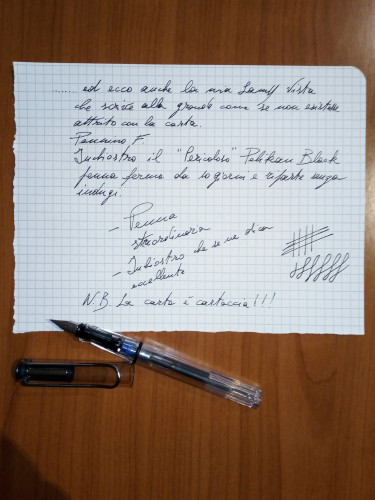 ........ ed ecco anche la mia Lamy Vista
che scrive alla grande come se non esistesse
attrito con la carta.
Pennino F.
Inchiostro il "Pericoloso" Pelikan Black
penna ferma da 10 giorni e riparte senza
indugi.
- Penna
straordinaria
- Inchiostro che se ne dica
eccellente
N.B. La carta è cartaccia!!!